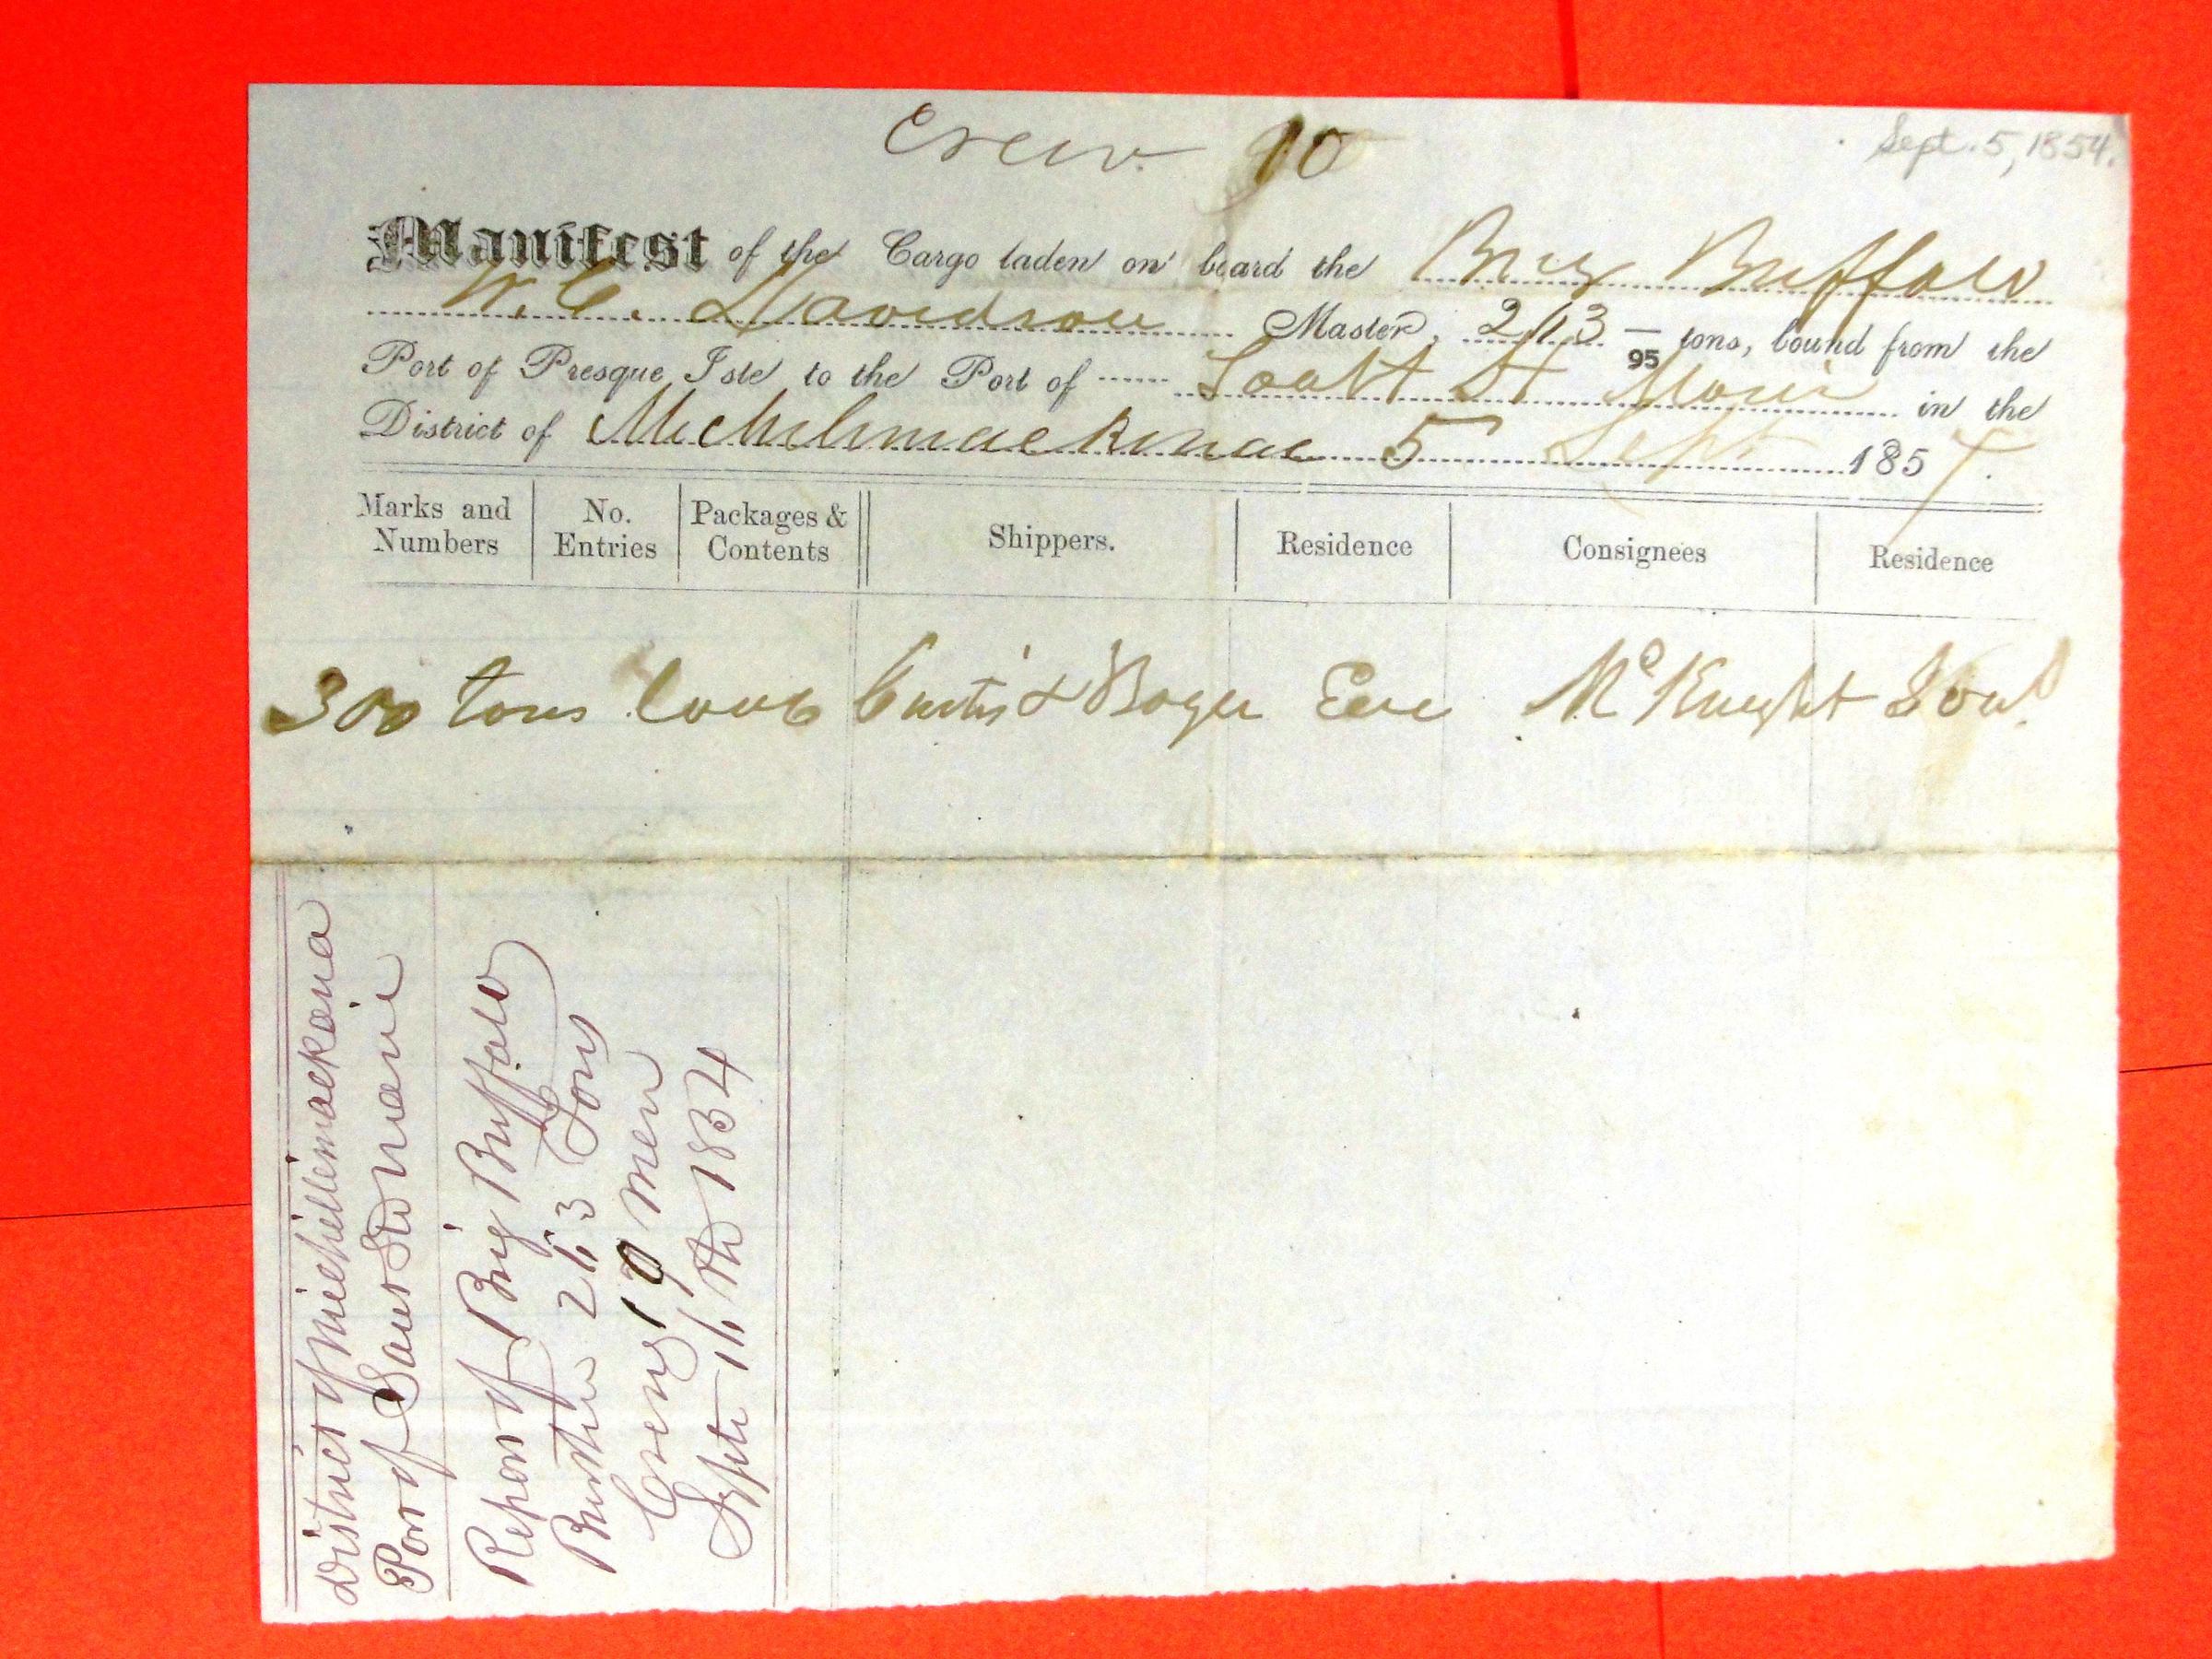 Crew 10
Sept. 5, 1854.
Manifest of the Cargo laden on board the Brig Buffalo
W. C. Davidson Master, 213 — 95 tons, bound from the
Port of Presque Isle to the Port of Soalt St Marie in the
District of Michelimackinac 5 Sept 1854.
Marks and Numbers No. Entries Packages & Contents Shippers. Residence Consignees Residence
300 tons Curtis & Boyer Erie McKnight
District of Michillimackana
Port of Saut Ste Marie
Report of Brig Buffalo
Burthen 213 Tons
10 men
Septr 16th 1854